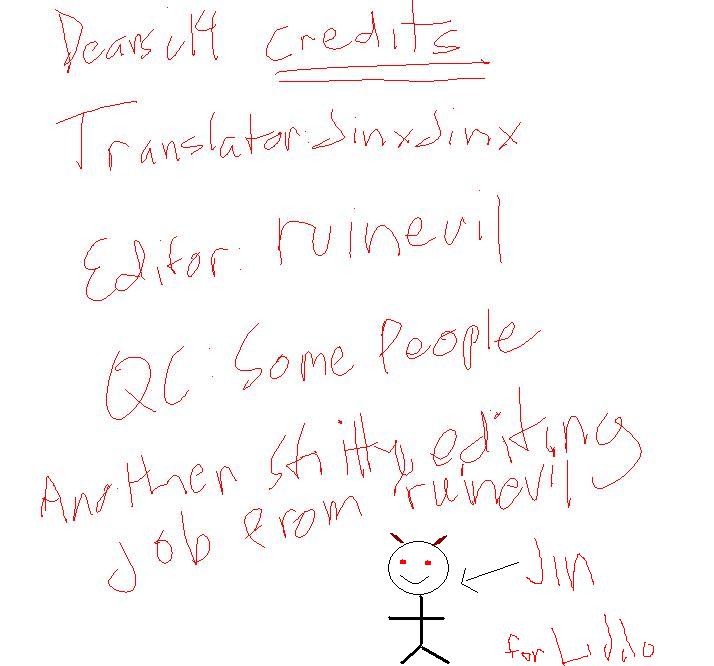 Dears ch4 credits
Translator: JinxJinx
Editor: ruinevil
QC: Some People
Another shitty editing
job from ruinevil
Jin
for Liddo